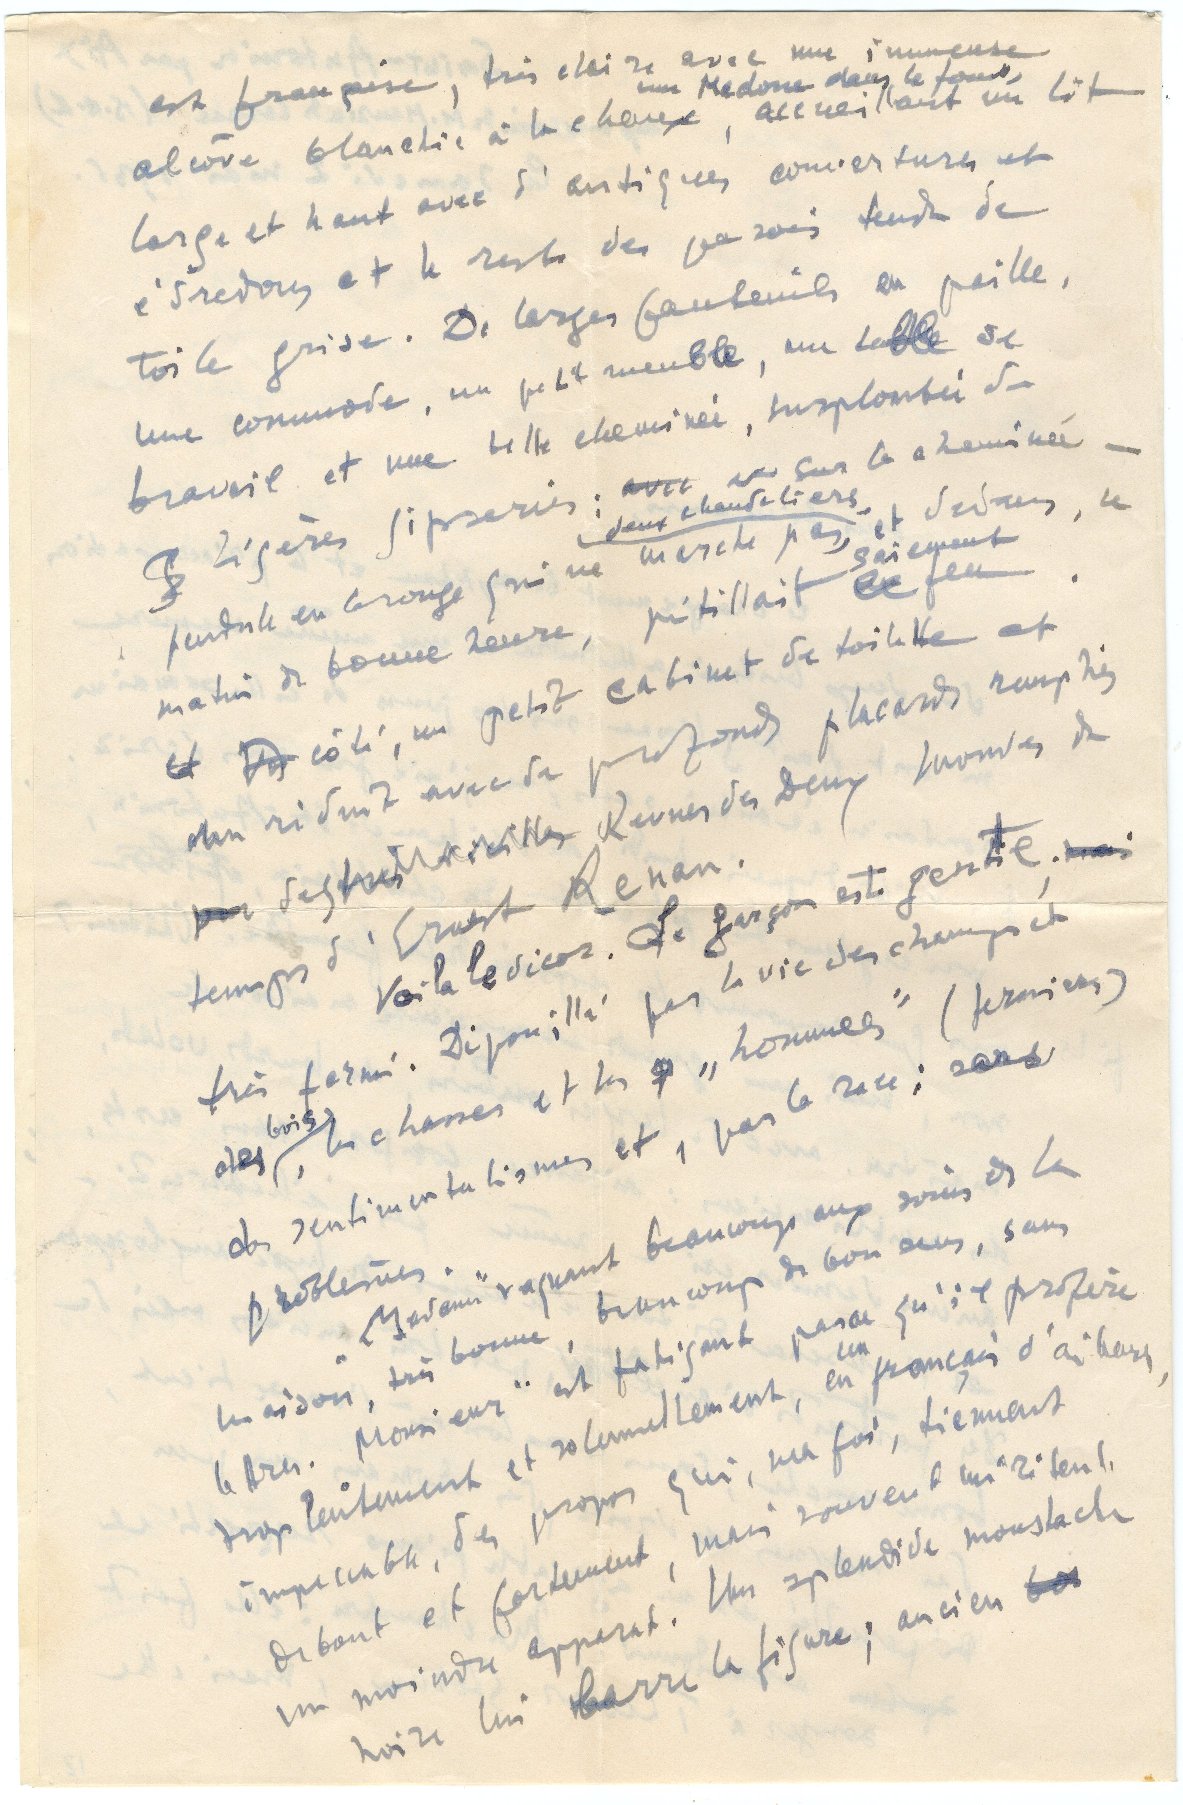 est française, très claire avec une immense
une Madone dans le fond
alcôve blanchie à la chaux, accueillant un lit
large et haut avec d'antiques couvertures et
édredons et le reste des parois tendu de
toile grise. De larges fauteuils en paille,
une commode, un petit meuble, une table de
travail et une belle cheminée, surplombée de
légères gipseries; avec sur la cheminée –
deux chandeliers
pendule en bronze qui ne marche pas, et dedans, ce
gaiement
matin de bonne heure, pétillait le feu.
et côté, un petit cabinet de toilette et
un réduit avec de profonds placards remplis
des très vieilles Revues des Deux Mondes du
temps d'Ernest Renan.
Voila le décor. Le garçon est gentil, mais
très fermé. Dépouillé par la vie des champs et
bois
des, les chasses et les „hommes" (fermiers)
des sentimentalismes et, par la race; sans
problèmes.
"Madame" vaquant beaucoup aux soins de la
maison, très bonne, beaucoup de bon sens, sans
lettres. "Monsieur" est fatigant parce qu'il profère
un
trop lentement et solennellement, en français d'ailleurs,
impeccable, des propos qui, ma foi, tiennent
debout et fortement, mais souvent méritent
un moindre apparat. Une splendide moustache
noire lui barre la figure; ancien